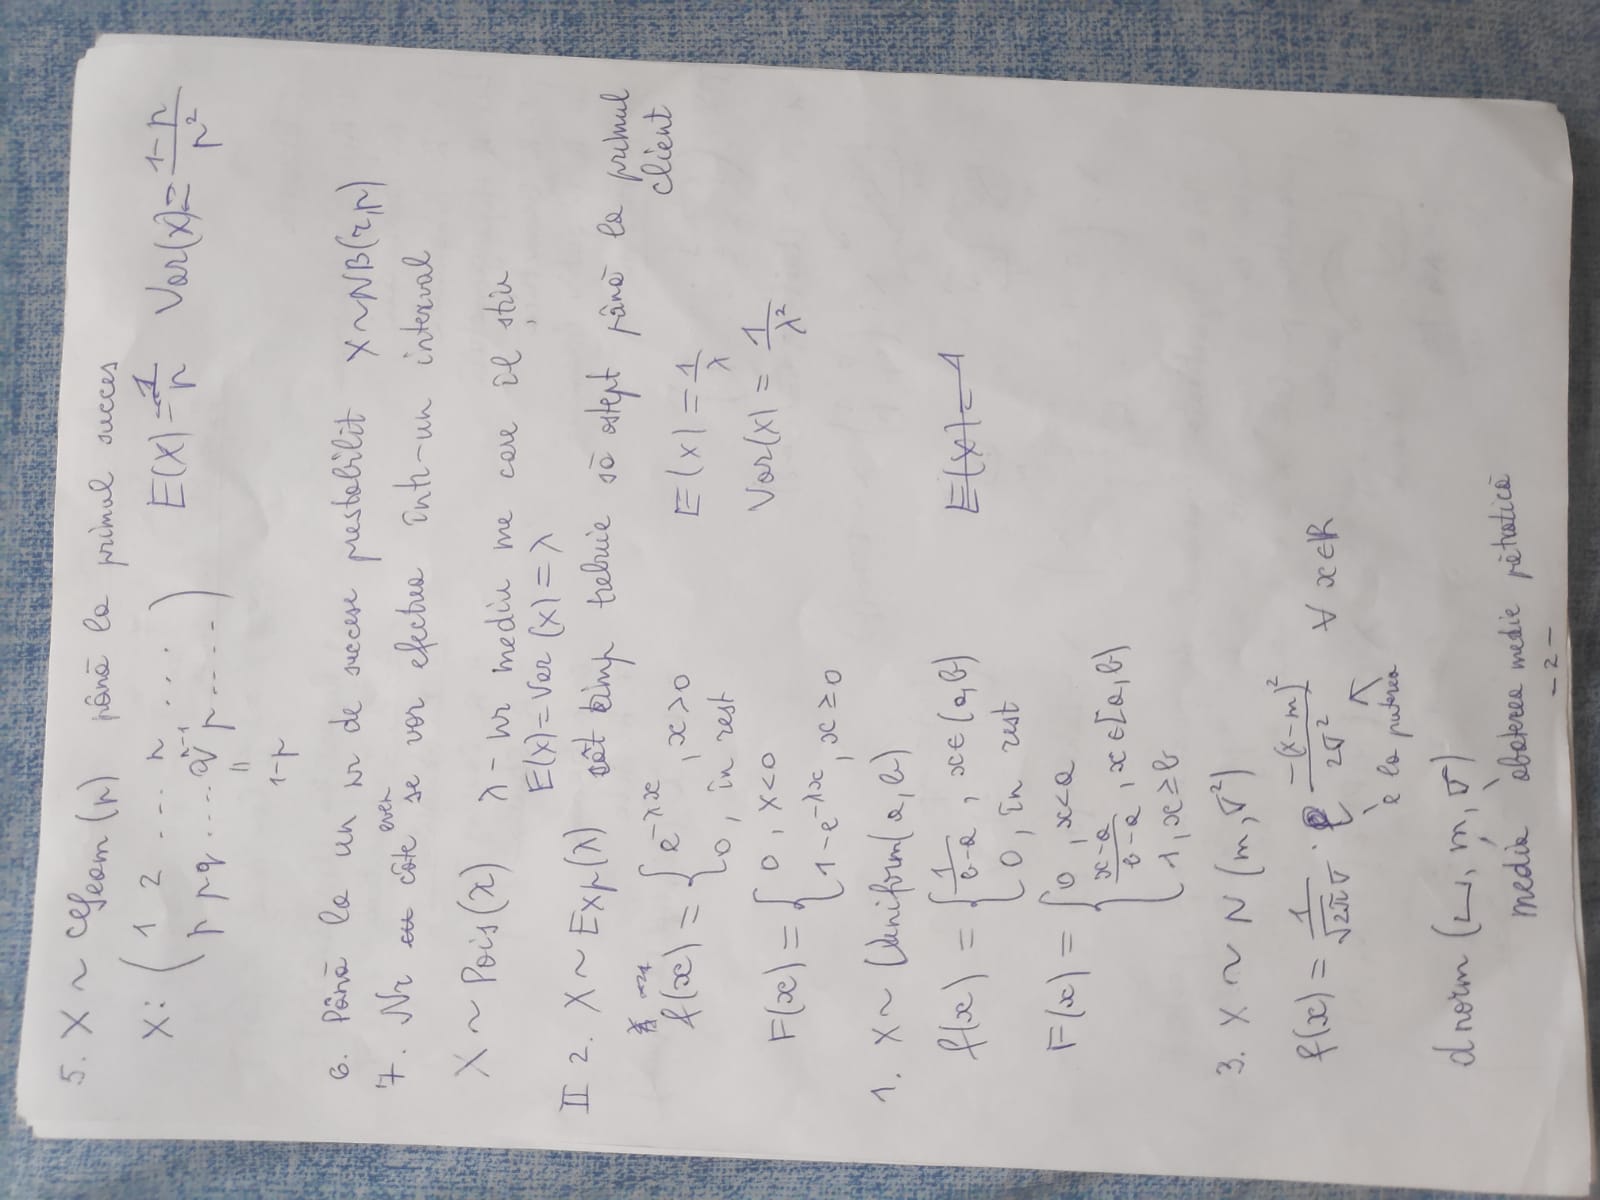 5. X ~ Geom(p) până la primul succes
X: ( 1 2 ... n ... ) E(X) = 1/p Var(X) = (1-p)/p²
p pq .... q^(n-1) p .....
=
1-p
6. Până la un nr de succese prestabilit X~NB(r,p)
7. Nr câte even se vor efectua într-un interval
X ~ Pois(λ) λ - nr mediu pe care îl știu
E(X) = Var(X) = λ
II 2. X ~ Exp(λ) cât timp trebuie să aștept până la primul
client
f(x) = { e^(-λx) , x>0 E(X) = 1/λ
0, în rest
F(x) = { 0 , x<0 Var(X) = 1/λ²
1-e^(-λx), x≥0
1. X ~ Uniform(a,b)
f(x) = { 1/(b-a) , x∈(a,b) E(X) = 1
0, în rest
F(x) = { 0 , x<a
(x-a)/(b-a) , x∈[a,b)
1, x≥b
3. X ~ N(m,σ²)
f(x) = 1/(√2π σ) · e^(-(x-m)²/2σ²) ∀ x∈R
e la puterea
dnorm (⎵, m, σ)
media abaterea medie pătratică
-2-